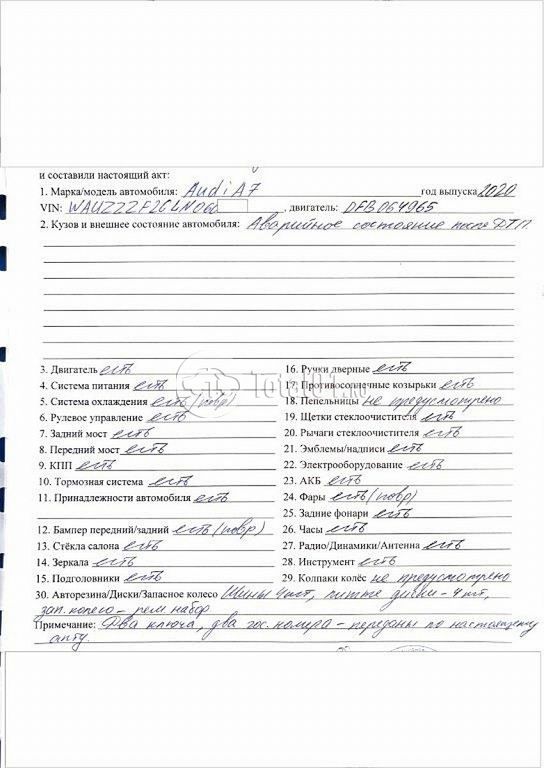 и составили настоящий акт:
1. Марка/модель автомобиля: Audi A7 год выпуска 2020
VIN: WAUZZZF2CLN060 , двигатель: DFB064965
2. Кузов и внешнее состояние автомобиля: Аварийное состояние после ДТП
3. Двигатель есть
4. Система питания есть
5. Система охлаждения есть (повр)
6. Рулевое управление есть
7. Задний мост есть
8. Передний мост есть
9. КПП есть
10. Тормозная система есть
11. Принадлежности автомобиля есть
12. Бампер передний/задний есть (повр)
13. Стёкла салона есть
14. Зеркала есть
15. Подголовники есть
16. Ручки дверные есть
17. Противосолнечные козырьки есть
18. Пепельницы не предусмотрено
19. Щетки стеклоочистителя есть
20. Рычаги стеклоочистителя есть
21. Эмблемы/надписи есть
22. Электрооборудование есть
23. АКБ есть
24. Фары есть (повр)
25. Задние фонари есть
26. Часы есть
27. Радио/Динамики/Антенна есть
28. Инструмент есть
29. Колпаки колёс не предусмотрено
30. Авторезина/Диски/Запасное колесо Шины 4 шт, литые диски - 4 шт,
зап. колесо - рем набор
Примечание: Два ключа, два гос. номера - переданы по настоящему
акту.
Total01.ru